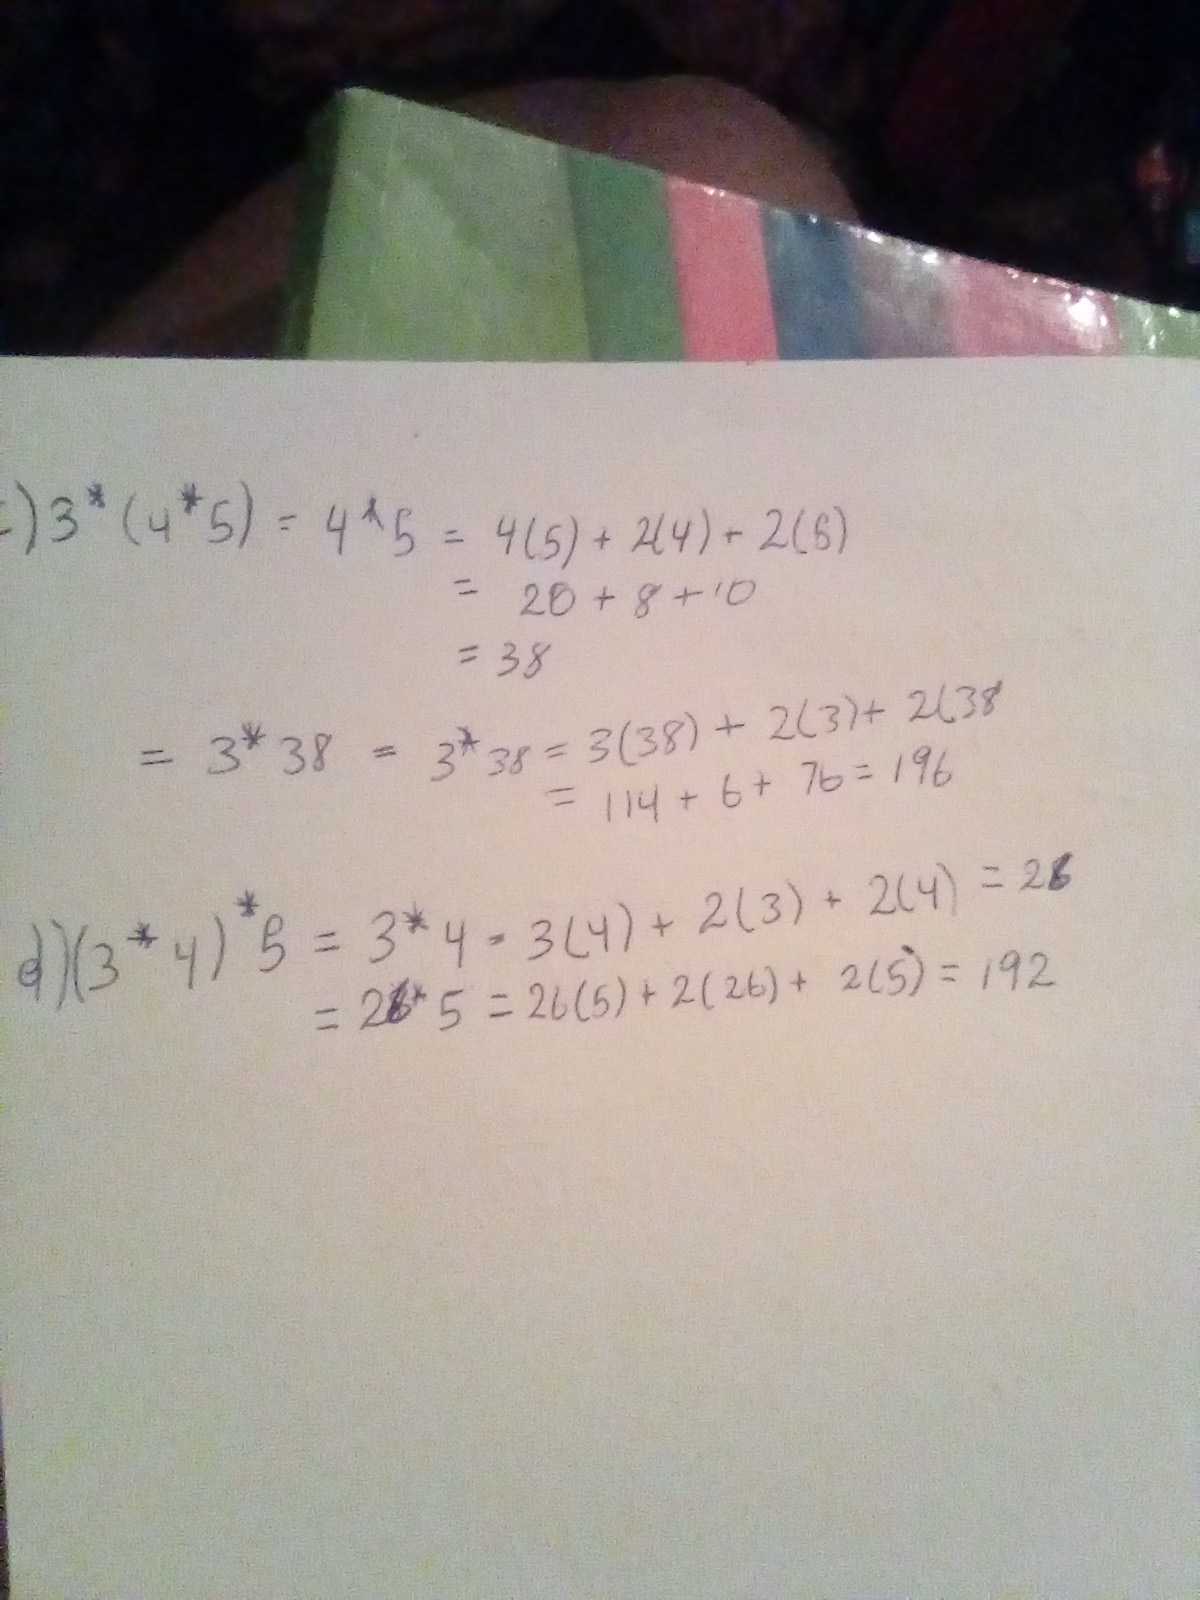 c) 3*(4*5) = 4*5 = 4(5) + 2(4) + 2(5)
= 20 + 8 + 10
= 38
= 3*38 = 3*38 = 3(38) + 2(3) + 2(38
= 114 + 6 + 76 = 196
d) (3*4)*5 = 3*4 = 3(4) + 2(3) + 2(4) = 26
= 26*5 = 26(5) + 2(26) + 2(5) = 192